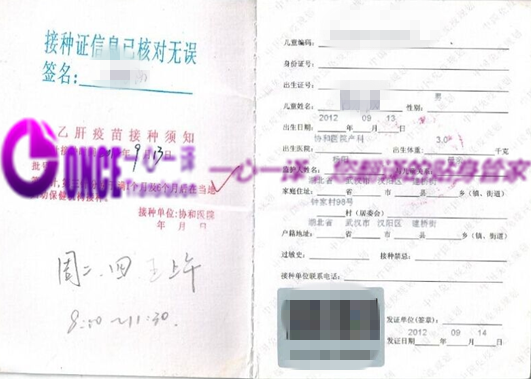 接种证信息已核对无误
签名:
乙肝疫苗接种须知
9月13
ONCE
一心一译
月后在当地
接种单位:协和医院
年 月 日
周二.四 上午
8:00~11:30.
儿童编码:
身份证号:
出生证号:
儿童姓名: 性别: 男
出生日期: 2012 年 09 月 13 日
协和医院产科 出生体重: 3.0 千克
一心一译 您翻译的贴身管家
家庭住址: 省 市 县 乡(镇、街道)
钟家村98号 村(居委会)
湖北省 武汉市 汉阳区 建桥街
户籍地址: 省 市 县 乡(镇、街道)
过敏史: 接种禁忌:
接种单位联系电话:
发证单位(签章):
2012 09 14
发证日期: 年 月 日